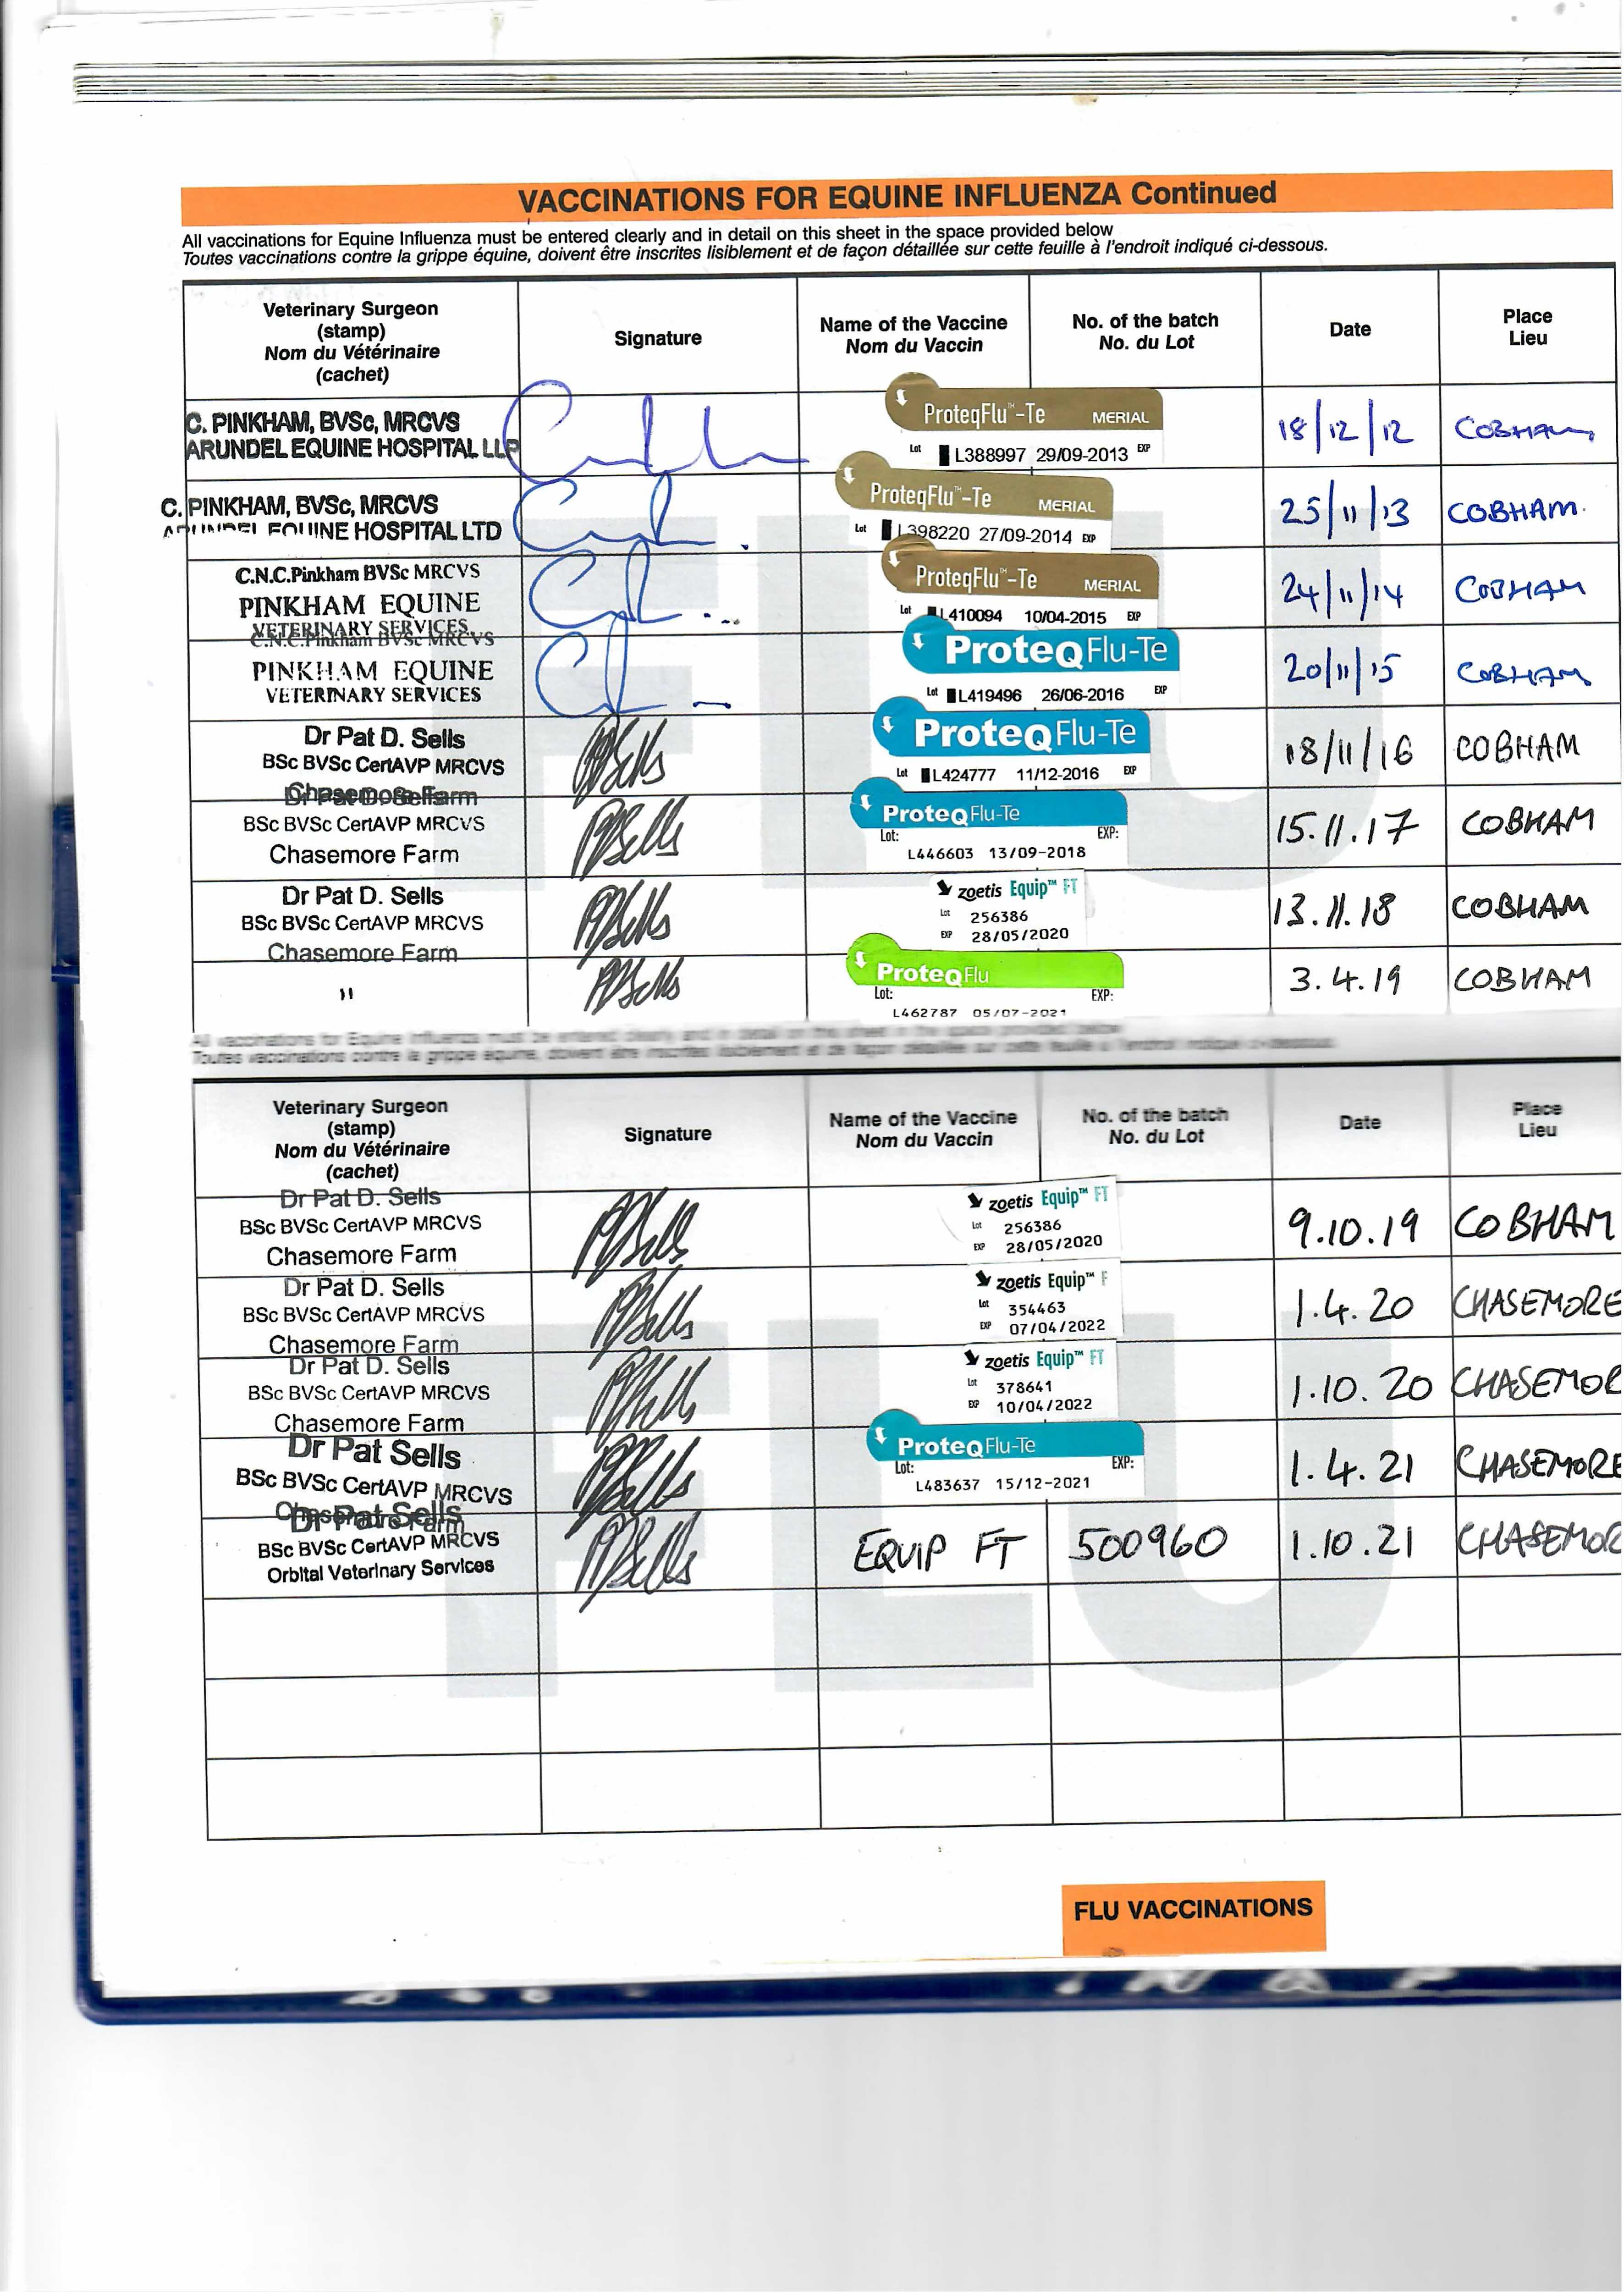 VACCINATIONS FOR EQUINE INFLUENZA Continued
All vaccinations for Equine Influenza must be entered clearly and in detail on this sheet in the space provided below
Toutes vaccinations contre la grippe équine, doivent être inscrites lisiblement et de façon détaillée sur cette feuille à l'endroit indiqué ci-dessous.
Veterinary Surgeon
(stamp)
Nom du Vétérinaire
(cachet)
Signature
Name of the Vaccine
Nom du Vaccin
No. of the batch
No. du Lot
Date
Place
Lieu
C. PINKHAM, BVSc, MRCVS
ARUNDEL EQUINE HOSPITAL LLP
ProteqFlu™-Te MERIAL
Lot L388997 29/09-2013 EXP
18/12/12
COBHAM
C. PINKHAM, BVSc, MRCVS
ARUNDEL EQUINE HOSPITAL LTD
ProteqFlu™-Te MERIAL
Lot L398220 27/09-2014 EXP
25/11/13
COBHAM
C.N.C.Pinkham BVSc MRCVS
PINKHAM EQUINE
VETERINARY SERVICES
ProteqFlu™-Te MERIAL
Lot L410094 10/04-2015 EXP
24/11/14
COBHAM
C.N.C.Pinkham BVSc MRCVS
PINKHAM EQUINE
VETERINARY SERVICES
ProteqFlu-Te
Lot L419496 26/06-2016 EXP
20/11/15
COBHAM
Dr Pat D. Sells
BSc BVSc CertAVP MRCVS
Chasemore Farm
PSells
ProteqFlu-Te
Lot L424777 11/12-2016 EXP
18/11/16
COBHAM
Dr Pat D. Sells
BSc BVSc CertAVP MRCVS
Chasemore Farm
PSells
ProteqFlu-Te
Lot: EXP:
L446603 13/09-2018
15.11.17
COBHAM
Dr Pat D. Sells
BSc BVSc CertAVP MRCVS
Chasemore Farm
PSells
zoetis Equip™ FT
Lot 256386
EXP 28/05/2020
13.11.18
COBHAM
"
PSells
ProteqFlu
Lot: EXP:
L462787 05/07-2021
3.4.19
COBHAM
All vaccinations for Equine Influenza must be entered clearly and in detail on this sheet in the space provided below
Toutes vaccinations contre la grippe équine, doivent être inscrites lisiblement et de façon détaillée sur cette feuille à l'endroit indiqué ci-dessous.
Veterinary Surgeon
(stamp)
Nom du Vétérinaire
(cachet)
Signature
Name of the Vaccine
Nom du Vaccin
No. of the batch
No. du Lot
Date
Place
Lieu
Dr Pat D. Sells
BSc BVSc CertAVP MRCVS
Chasemore Farm
PSells
zoetis Equip™ FT
Lot 256386
EXP 28/05/2020
9.10.19
COBHAM
Dr Pat D. Sells
BSc BVSc CertAVP MRCVS
Chasemore Farm
PSells
zoetis Equip™ F
Lot 354463
EXP 07/04/2022
1.4.20
CHASEMORE
Dr Pat D. Sells
BSc BVSc CertAVP MRCVS
Chasemore Farm
PSells
zoetis Equip™ FT
Lot 378641
EXP 10/04/2022
1.10.20
CHASEMOR
Dr Pat Sells
BSc BVSc CertAVP MRCVS
Chasemore Farm
PSells
ProteqFlu-Te
Lot: EXP:
L483637 15/12-2021
1.4.21
CHASEMORE
Dr Pat Sells
BSc BVSc CertAVP MRCVS
Orbital Veterinary Services
PSells
EQUIP FT
500960
1.10.21
CHASEMOR
FLU
FLU
FLU VACCINATIONS